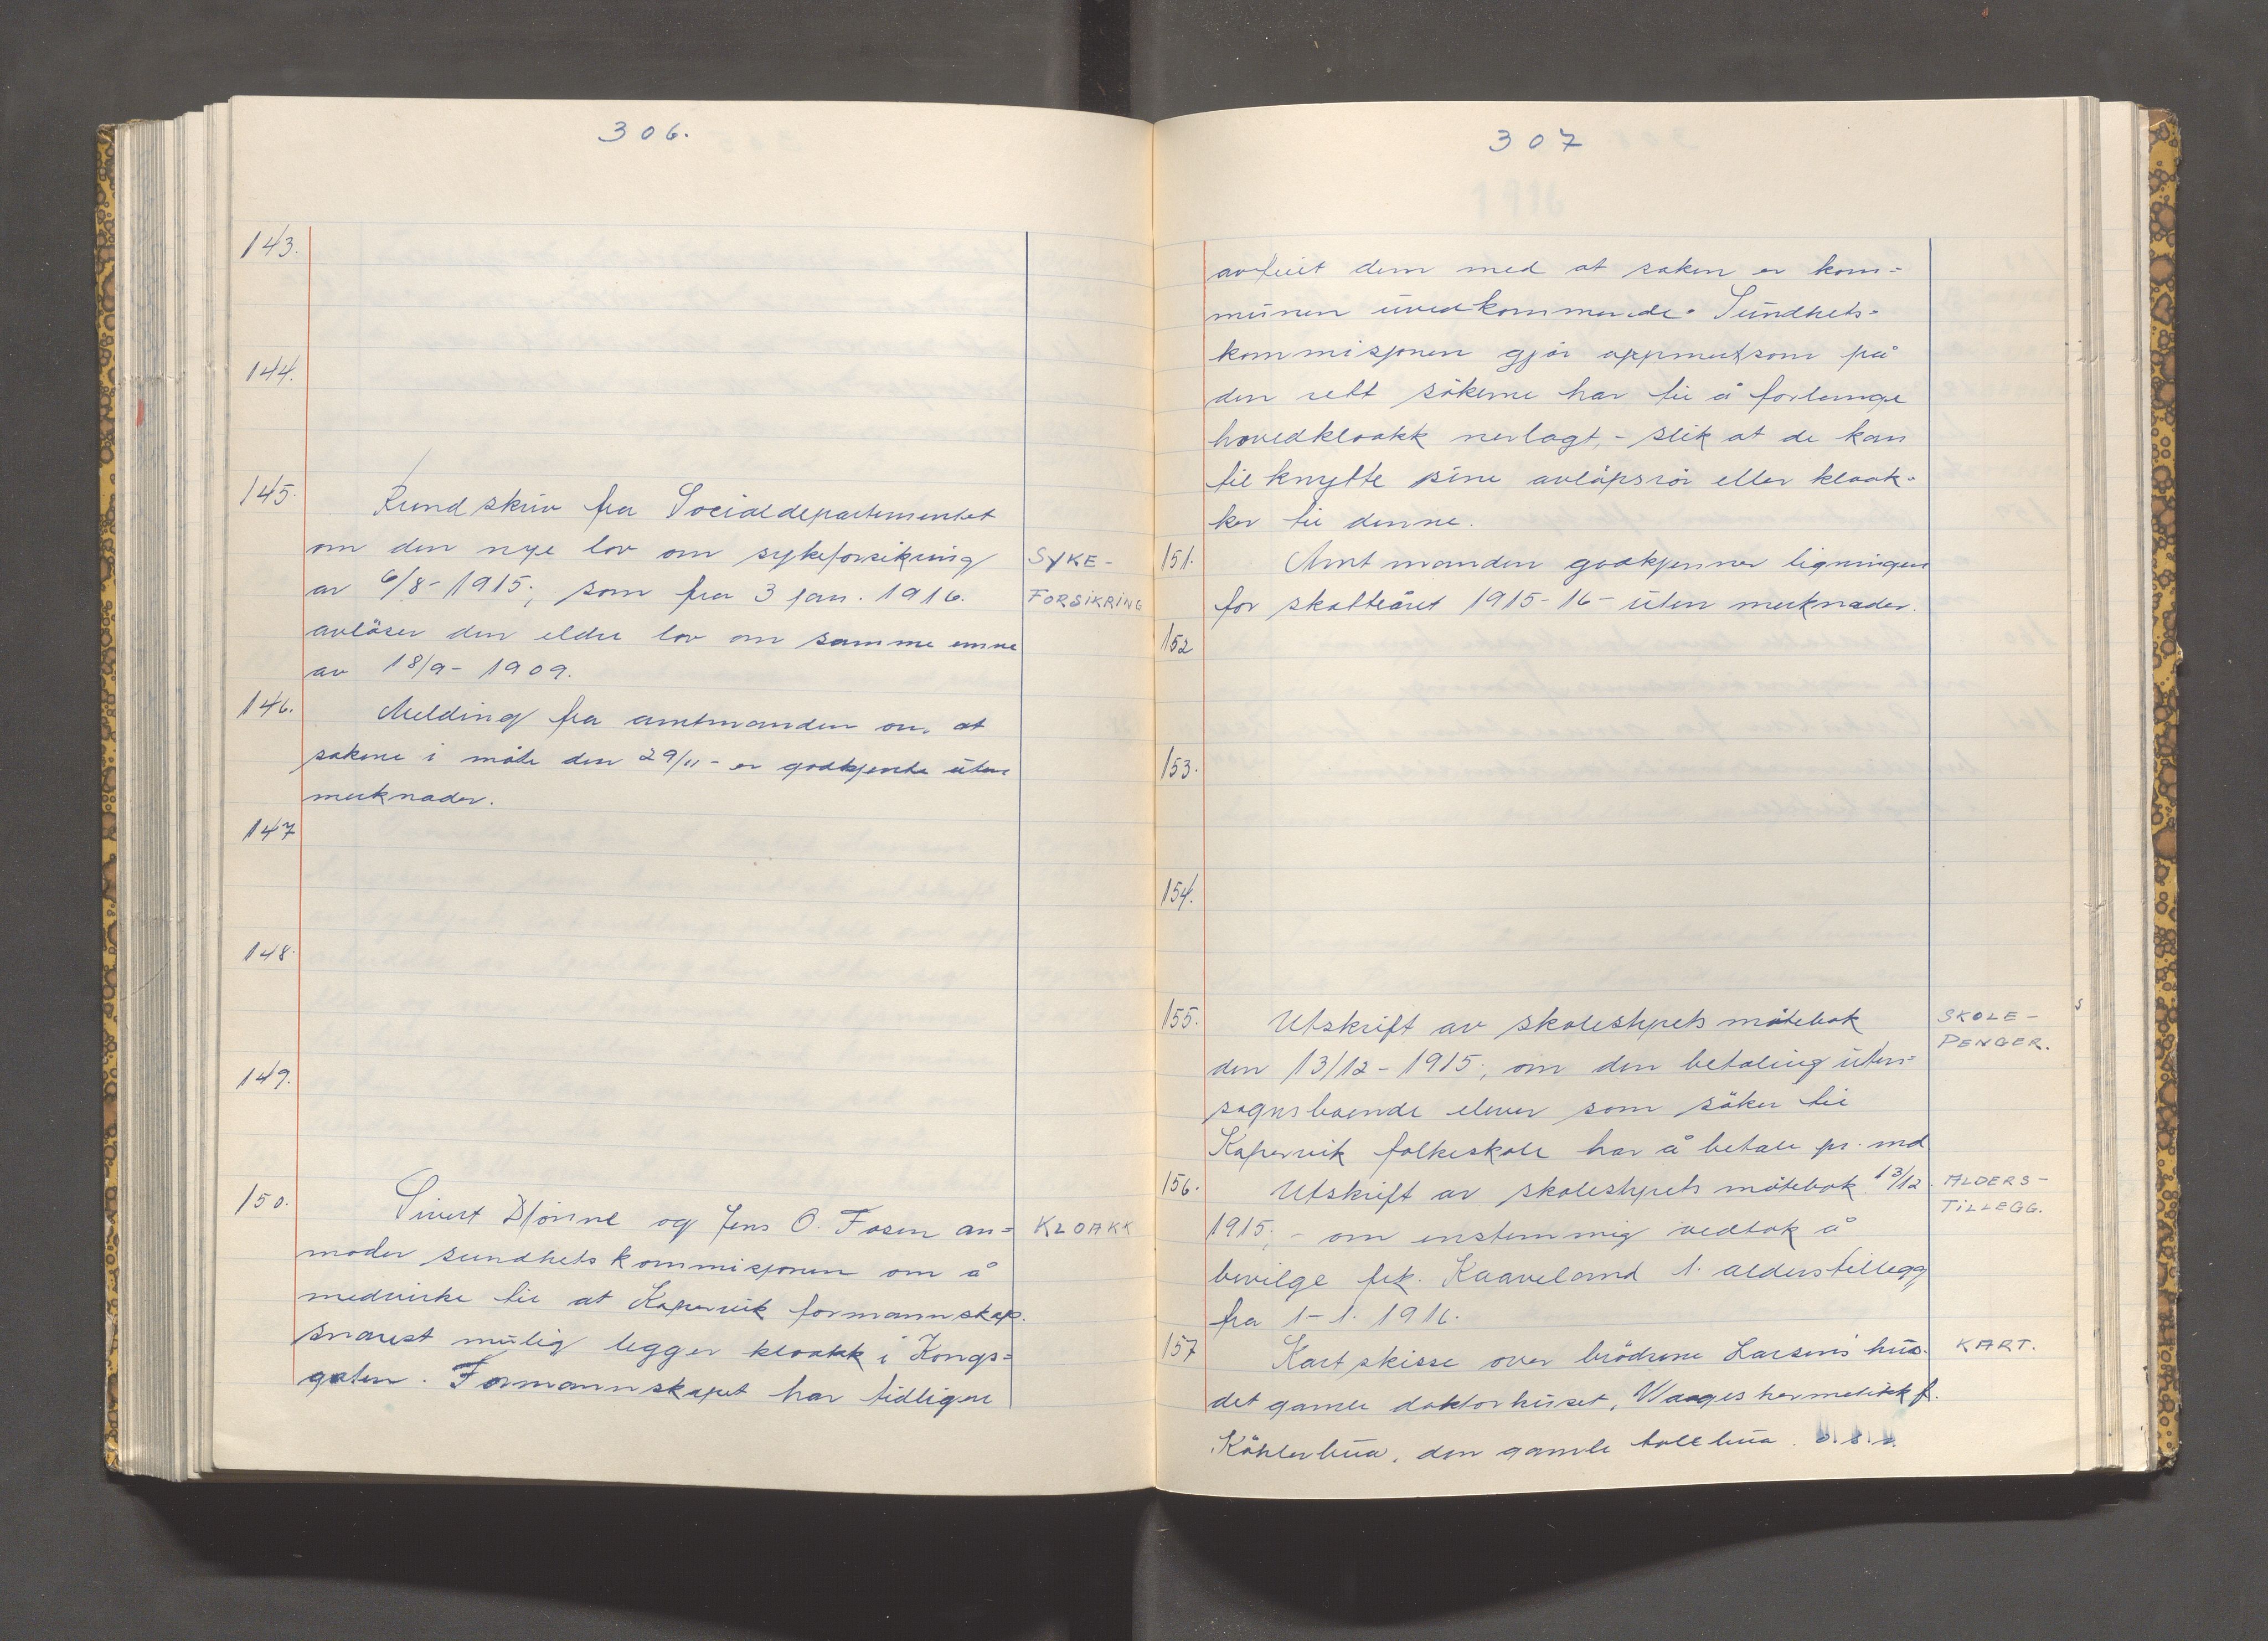 306.
143.
144.
145.
Rundskriv fra Socialdepartementet
om den nye lov om sykeforsikring
SYKE-
av 6/8-1915; som fra 3 jan. 1916.
FORSIKRING
avlöser den eldre lov om samme emne
av 18/9-1909.
146.
Melding fra amtmanden om at
sakene i möte den 29/11- er godkjente uten
merknader.
147
148.
149.
150.
Sivert Djönne og Jens O. Fosen an=
KLOAKK
moder sundhetskommisjonen om å
medvirke til at Kopervik formannskap.
snarest mulig legger kloakk i Kongs=
gaten. Formannskapet har tidligere
307
avfeiet dem med at saken er kom=
munen uvedkommende. Sundhets=
kommisjonen gjör oppmerksom på
den rett sökerne har til å forlange
hovedkloakk nerlagt,- slik at de kan
tilknytte sine avlöpsrör eller kloak-
ker til denne.
151.
Amtmanden godkjenner ligningen
for skatteåret 1915-16- uten merknader.
152
153.
154.
155.
Utskrift av skolestyrets mötebok
SKOLE-
den 13/12-1915; om den betaling uten=
PENGER.
sognsboende elever som söker til
Kopervik folkeskole har å betale pr. md
156.
Utskrift av skolestyrets mötebok 13/12.
ALDERS-
1915;- om enstemmig vedtak å
TILLEGG.
bevilge frk. Kaaveland 1. alderstillegg
fra 1-1. 1916.
157
Kart skisse over brödrene Larsens hus.
KART.
det gamle doktorhuset, Waages hermetikkf.
Köhlerbua, den gamle tollbua. o.s.v.